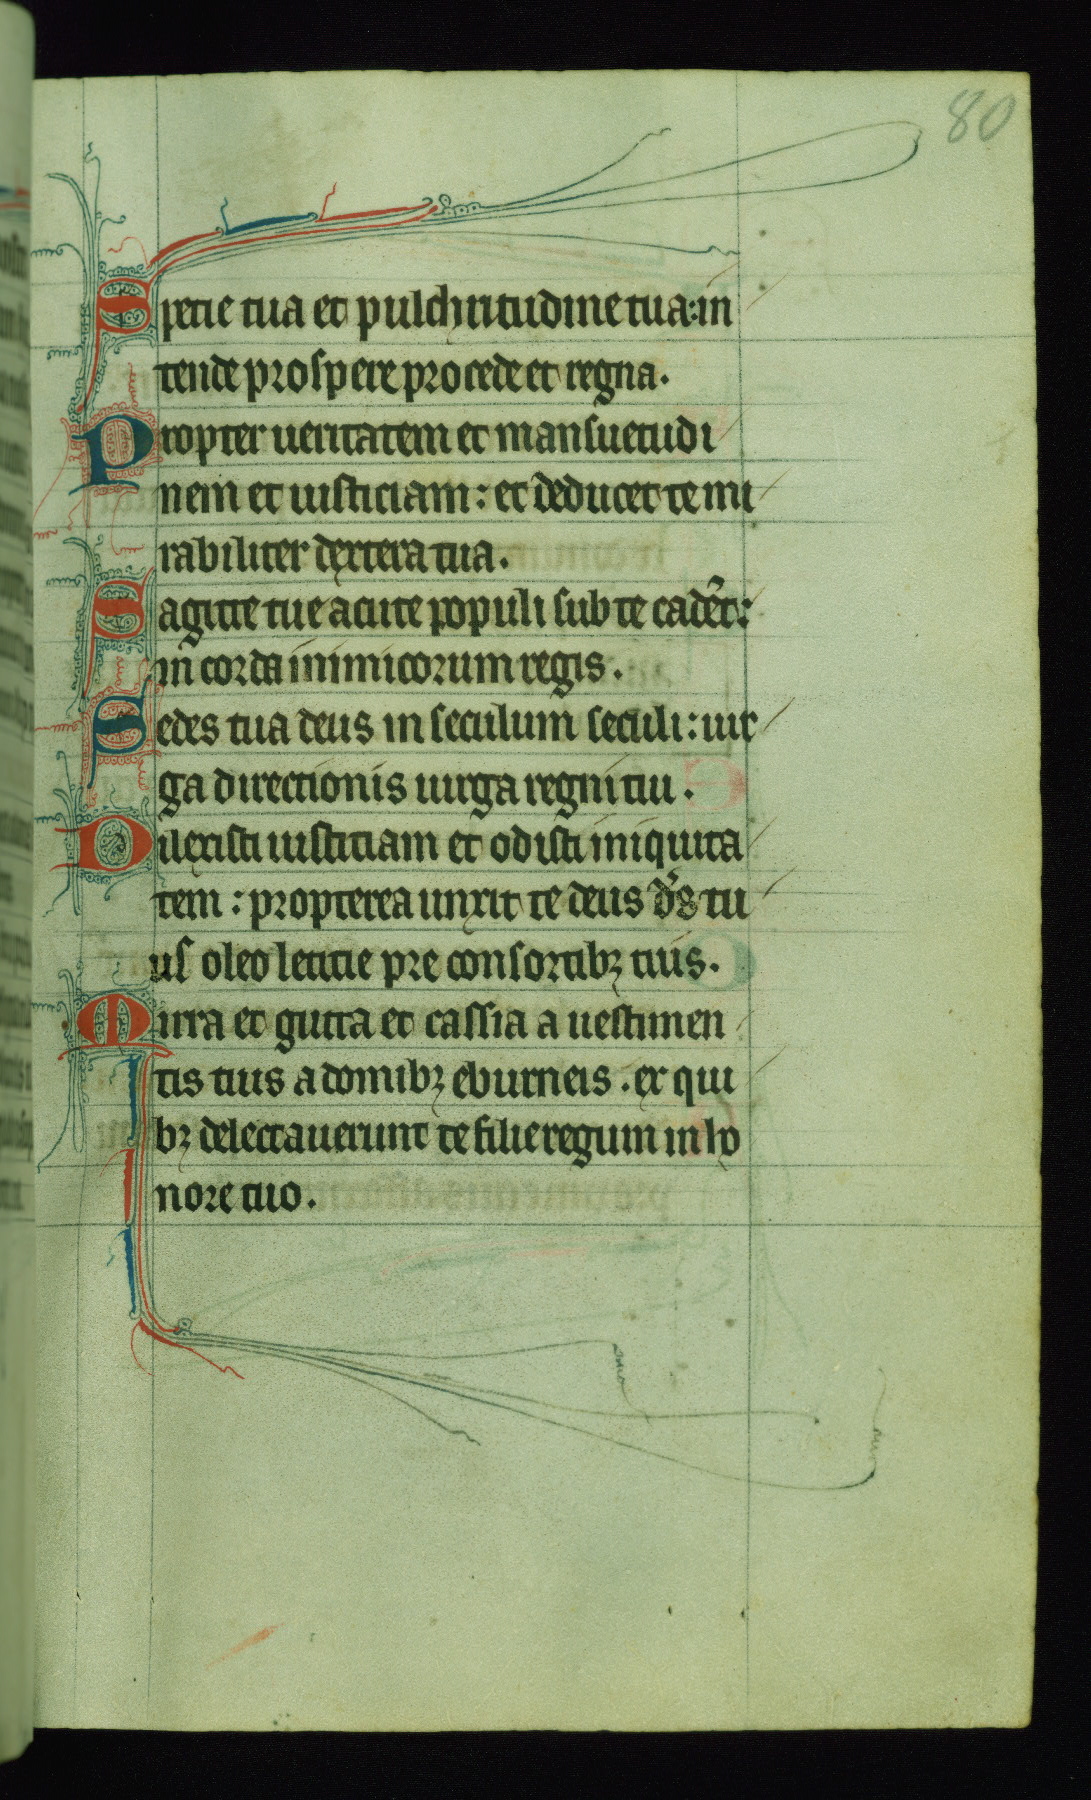 80
Specie tua et pulchritudine tua: in
tende prospere procede et regna.
Propter ueritatem et mansuetudi
nem et iusticiam: et deducet te mi
rabiliter dextera tua.
Sagitte tue acute populi sub te cadēt:
in corda inimicorum regis.
Sedes tua deus in seculum seculi: uir
ga directionis uirga regni tui.
Dilexisti iusticiam et odisti iniquita
tem: propterea unxit te deus ds̄ tu
us oleo leticie pre consortibꝫ tuis.
Mirra et gutta et cassia a uestimen
tis tuis a domibꝫ eburneis. ex qui
bꝫ delectauerunt te filie regum in ho
nore tuo.